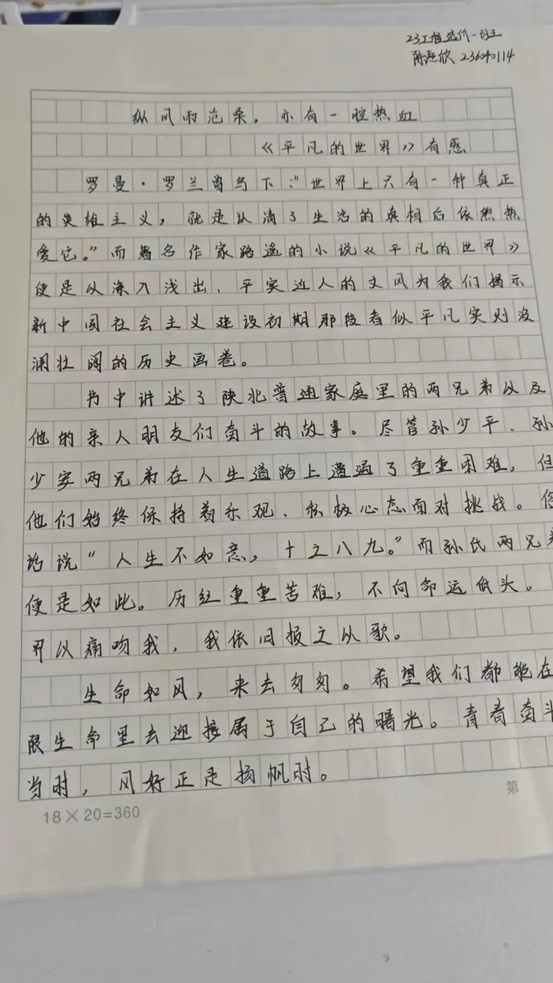 23工程造价一班
陈 欣 236040114
纵风雨沧桑，亦有一腔热血
《平凡的世界》有感
罗曼·罗兰曾写下："世界上只有一种真正
的英雄主义，就是认清了生活的真相后依然热
爱它。"而著名作家路遥的小说《平凡的世界》
便是以深入浅出、平实近人的文风为我们揭示
新中国社会主义建设初期那段看似平凡实则波
澜壮阔的历史画卷。
书中讲述了陕北普通家庭里的两兄弟以及
他的亲人朋友们奋斗的故事。尽管孙少平、孙
少安两兄弟在人生道路上遭遇了重重困难，但
他们始终保持着乐观、积极心态面对挑战。俗
话说"人生不如意，十之八九。"而孙氏两兄弟
便是如此。历经重重苦难，不向命运低头。
界以痛吻我，我依旧报之以歌。
生命如风，来去匆匆。希望我们都能在
限生命里去迎接属于自己的曙光。青春奋斗
当时，风好正是扬帆时。
18×20=360
第